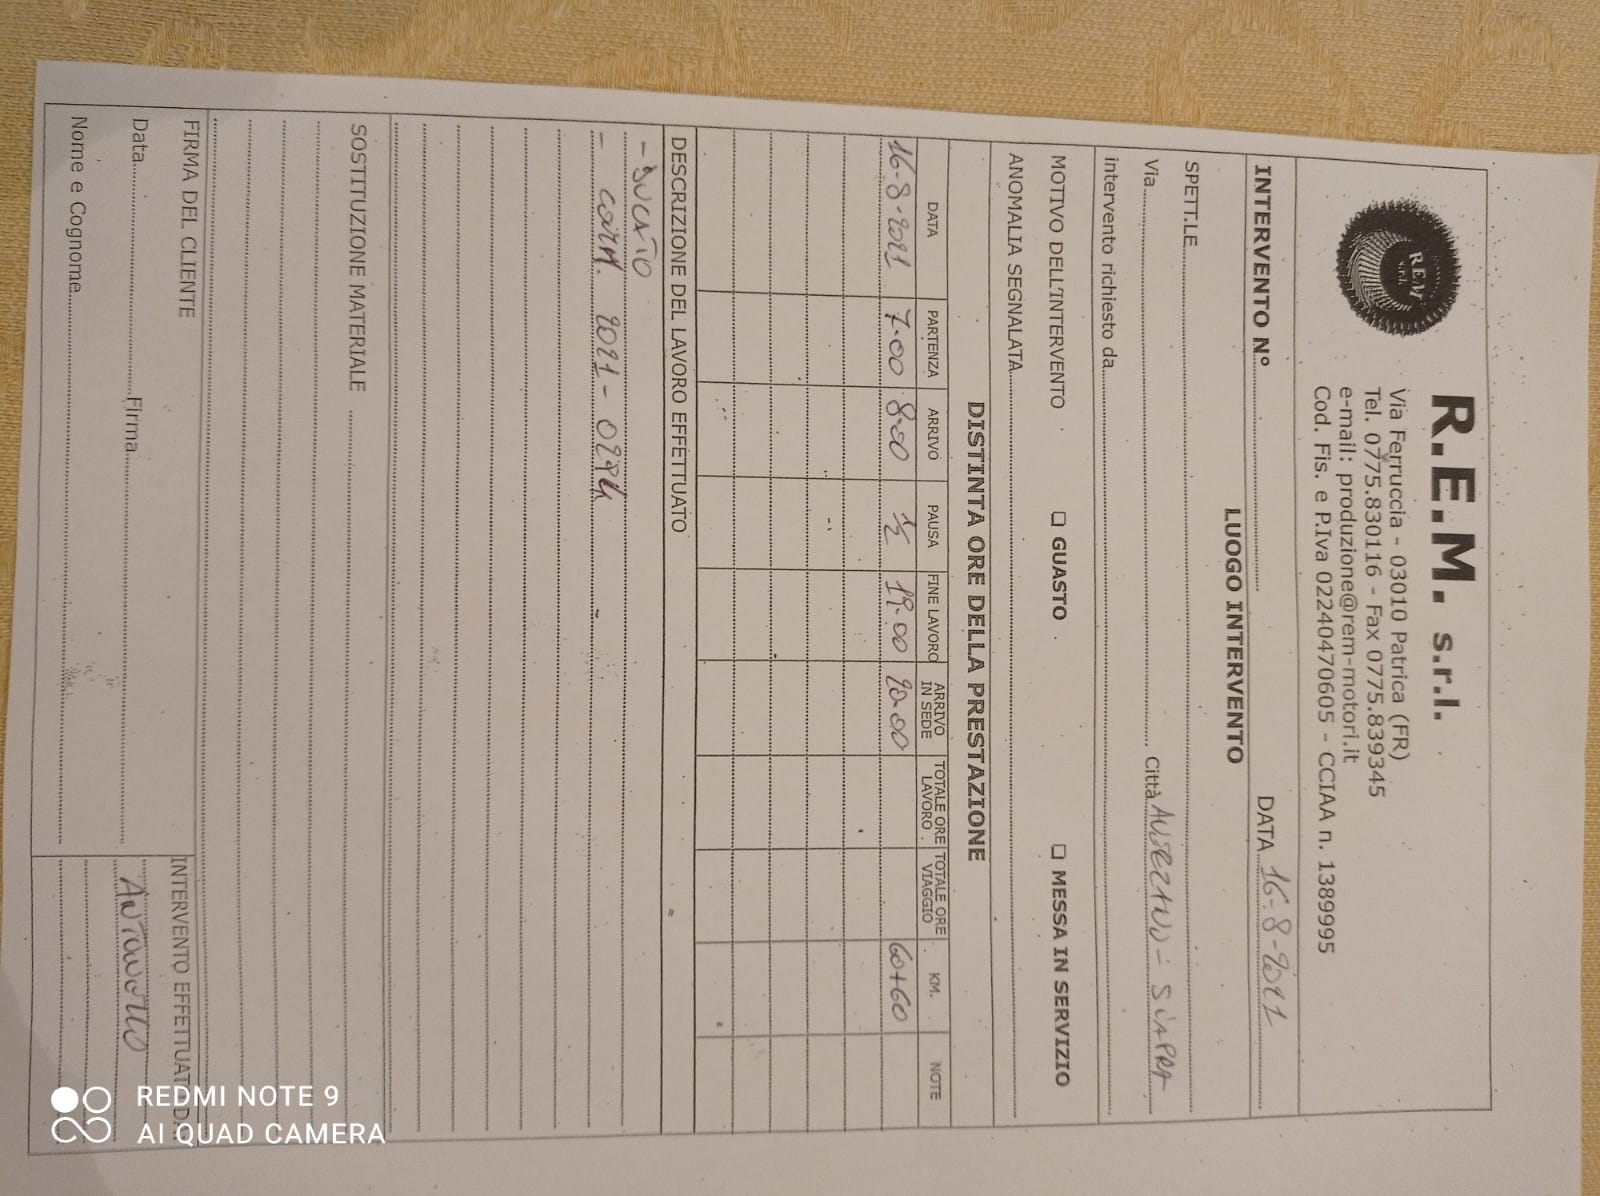 R.E.M. s.r.l.
REM
s.r.l.
Via Ferruccia - 03010 Patrica (FR)
Tel. 0775.830116 - Fax 0775.839345
e-mail: produzione@rem-motori.it
Cod. Fis. e P.Iva 02240470605 - CCIAA n. 1389995
INTERVENTO N° DATA 16-8-2021
LUOGO INTERVENTO
SPETT.LE
Via Città
intervento richiesto da
MOTIVO DELL'INTERVENTO □ GUASTO □ MESSA IN SERVIZIO
ANOMALIA SEGNALATA
DISTINTA ORE DELLA PRESTAZIONE
DATA PARTENZA ARRIVO PAUSA FINE LAVORO ARRIVO IN SEDE TOTALE ORE LAVORO TOTALE ORE VIAGGIO KM. NOTE
16-8-2021 7.00 8.00 1/2 19.00 20.00 60+60
DESCRIZIONE DEL LAVORO EFFETTUATO
- DUCATO
- COMM. 2021-0294
SOSTITUZIONE MATERIALE
FIRMA DEL CLIENTE INTERVENTO EFFETTUATO DA
Data Firma
Nome e Cognome
REDMI NOTE 9
AI QUAD CAMERA